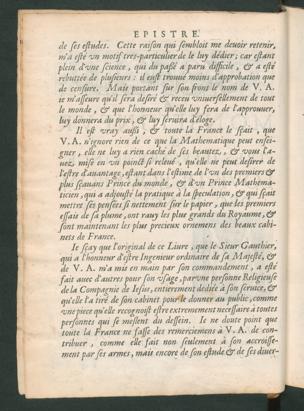 EPISTRE.
de ses estudes. Cette raison qui sembloit me deuoir retenir,
m'a esté vn motif tres-particulier de le luy dédier; car estant
plein d'vne science, qui du passé a paru difficile, & a esté
rebuttée de plusieurs: il eust trouué moins d'approbation que
de censure. Mais portant sur son frons le nom de V. A.
ie m'asseure qu'il sera desiré & receu vniuersellement de tout
le monde, & que l'honneur qu'elle luy fera de l'approuuer,
luy donnera du prix, & luy seruira d'éloge.
Il est vray aussi, & toute la France le sçait, que
V. A. n'ignore rien de ce que la Mathematique peut ensei-
gner, elle ne luy a rien caché de ses beautez, & vous l'a-
uez mise en vn poinct si releué, qu'elle ne peut desirer de
l'estre d'auantage, estant dans l'estime de l'vn des premiers &
plus sçauans Prince du monde, & d'vn Prince Mathema-
ticien, qui a adiousté la pratique à la speculation, & qui sçait
mettre ses pensées si nettement sur le papier, que les premiers
essais de sa plume, ont rauy les plus grands du Royaume, &
sont maintenant les plus precieux ornemens des beaux cabi-
nets de France.
Ie sçay que l'original de ce Liure, que le Sieur Gauthier,
qui a l'honneur d'estre Ingenieur ordinaire de sa Majesté, &
de V. A. m'a mis en main par son commandement, a esté
fait auec d'autres pour son vsage, par vne personne Religieuse
de la Compagnie de Iesus, entierement dédiée à son seruice, &
qu'elle l'a tiré de son cabinet pour le donner au public, comme
vne piece qu'elle recognoist estre extremement necessaire à toutes
personnes qui se meslent du dessein. Ie ne doute point que
toute la France ne fasse des remerciemens à V. A. de con-
tribuer, comme elle fait non seulement à son accroisse-
ment par ses armes, mais encore de son estude & de ses diuer-